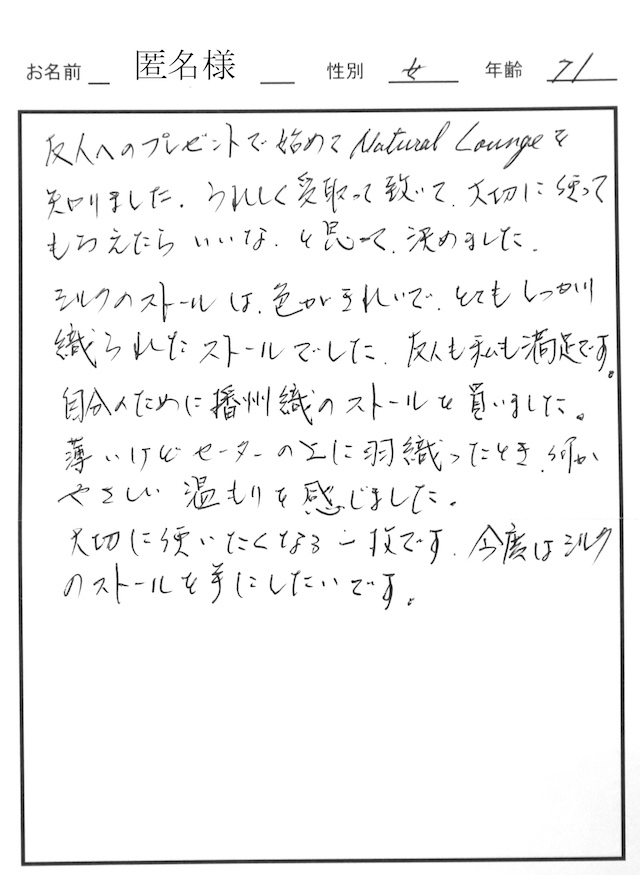 お名前 匿名様 性別 女 年齢 71
友人へのプレゼントで始めて Natural Lounge を
知りました。うれしく受取って致いて、大切に使って
もらえたらいいな、と思って、決めました。
シルクのストールは、色がきれいで、とてもしっかり
織られたストールでした。友人も私も満足です。
自分のために播州織のストールを買いました。
薄いけどセーターの上に羽織ったとき、何か
やさしい温もりを感じました。
大切に使いたくなる一枚です。今度はシルク
のストールを手にしたいです。